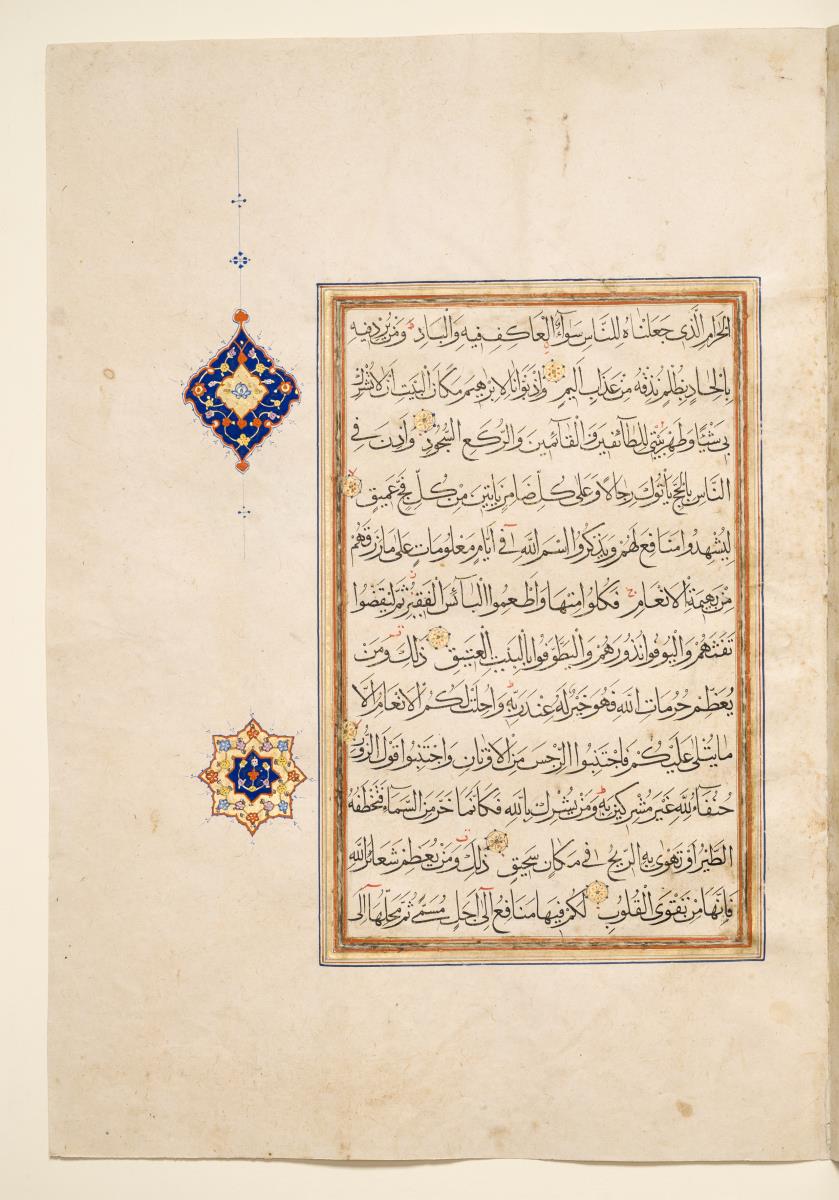 الْحَرَامِ الَّذِي جَعَلْنَاهُ لِلنَّاسِ سَوَاءً الْعَاكِفُ فِيهِ وَالْبَادِ وَمَنْ يُرِدْ فِيهِ
بِإِلْحَادٍ بِظُلْمٍ نُذِقْهُ مِنْ عَذَابٍ أَلِيمٍ وَإِذْ بَوَّأْنَا لِإِبْرَاهِيمَ مَكَانَ الْبَيْتِ أَنْ لَا تُشْرِكْ
بِي شَيْئًا وَطَهِّرْ بَيْتِيَ لِلطَّائِفِينَ وَالْقَائِمِينَ وَالرُّكَّعِ السُّجُودِ وَأَذِّنْ فِي
النَّاسِ بِالْحَجِّ يَأْتُوكَ رِجَالًا وَعَلَى كُلِّ ضَامِرٍ يَأْتِينَ مِنْ كُلِّ فَجٍّ عَمِيقٍ
لِيَشْهَدُوا مَنَافِعَ لَهُمْ وَيَذْكُرُوا اسْمَ اللَّهِ فِي أَيَّامٍ مَعْلُومَاتٍ عَلَى مَا رَزَقَهُمْ
مِنْ بَهِيمَةِ الْأَنْعَامِ فَكُلُوا مِنْهَا وَأَطْعِمُوا الْبَائِسَ الْفَقِيرَ ثُمَّ لْيَقْضُوا
تَفَثَهُمْ وَلْيُوفُوا نُذُورَهُمْ وَلْيَطَّوَّفُوا بِالْبَيْتِ الْعَتِيقِ ذَلِكَ وَمَنْ
يُعَظِّمْ حُرُمَاتِ اللَّهِ فَهُوَ خَيْرٌ لَهُ عِنْدَ رَبِّهِ وَأُحِلَّتْ لَكُمُ الْأَنْعَامُ إِلَّا
مَا يُتْلَى عَلَيْكُمْ فَاجْتَنِبُوا الرِّجْسَ مِنَ الْأَوْثَانِ وَاجْتَنِبُوا قَوْلَ الزُّورِ
حُنَفَاءَ لِلَّهِ غَيْرَ مُشْرِكِينَ بِهِ وَمَنْ يُشْرِكْ بِاللَّهِ فَكَأَنَّمَا خَرَّ مِنَ السَّمَاءِ فَتَخْطَفُهُ
الطَّيْرُ أَوْ تَهْوِي بِهِ الرِّيحُ فِي مَكَانٍ سَحِيقٍ ذَلِكَ وَمَنْ يُعَظِّمْ شَعَائِرَ اللَّهِ
فَإِنَّهَا مِنْ تَقْوَى الْقُلُوبِ لَكُمْ فِيهَا مَنَافِعُ إِلَى أَجَلٍ مُسَمًّى ثُمَّ مَحِلُّهَا إِلَى